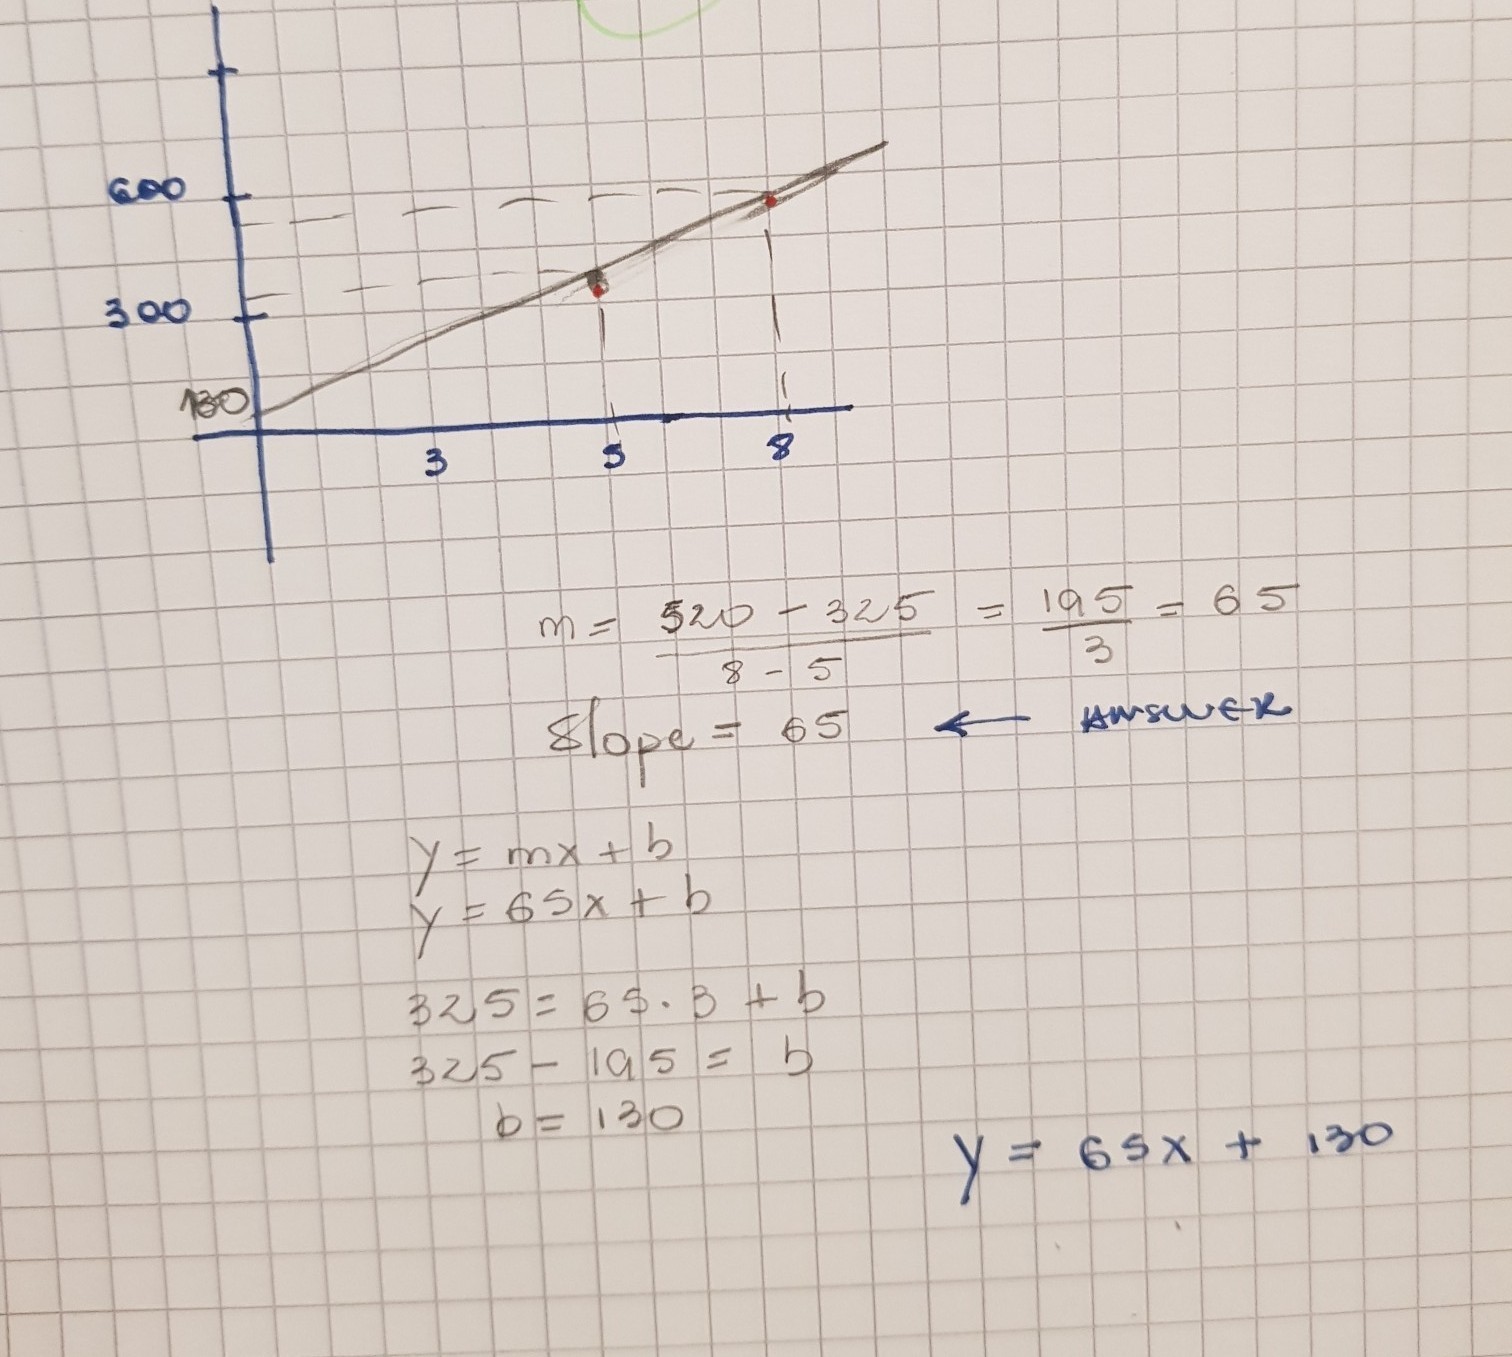 600
300
130
3 5 8
m = 520 - 325 / 8 - 5 = 195 / 3 = 65
Slope = 65 ← ANSWER
y = mx + b
y = 65x + b
325 = 65 · 3 + b
325 - 195 = b
b = 130
y = 65x + 130